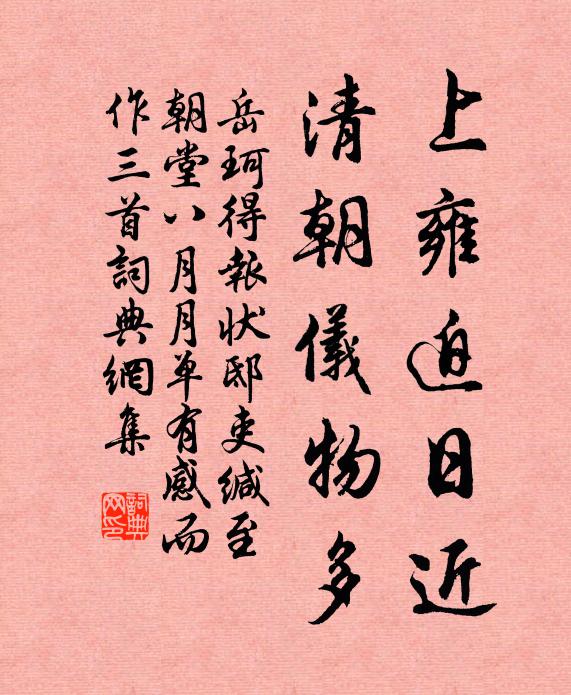 上雍迫日近
清朝儀物多
岳珂得報狀邸吏緘至
朝堂八月月单有感而
作三首詞典網集
詞典网印